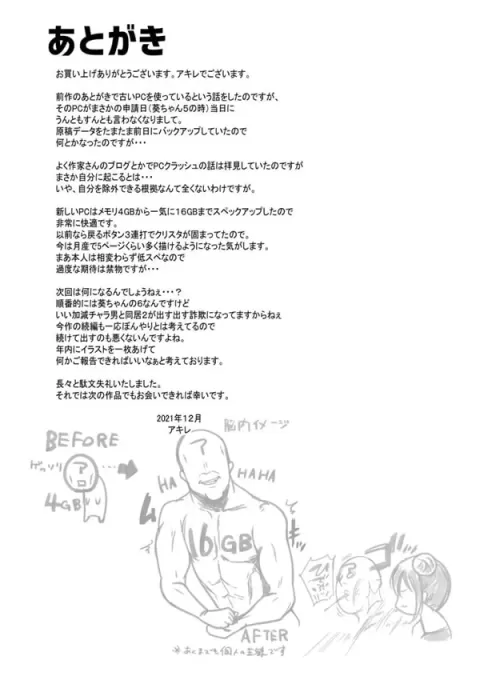 あとがき
お買い上げありがとうございます。アキレでございます。
前作のあとがきで古いPCを使っているという話をしたのですが、
そのPCがまさかの申請日(葵ちゃん5の時)当日に
うんともすんとも言わなくなりまして。
原稿データをたまたま前日にバックアップしていたので
何とかなったのですが・・・
よく作家さんのブログとかでPCクラッシュの話は拝見していたのですが
まさか自分に起こるとは・・・
いや、自分を除外できる根拠なんて全くないわけですが。
新しいPCはメモリ4GBから一気に16GBまでスペックアップしたので
非常に快適です。
以前なら戻るボタン3連打でクリスタが固まってたので。
今は月産で5ページくらい多く描けるようになった気がします。
まあ本人は相変わらず低スペなので
過度な期待は禁物ですが・・・
次回は何になるんでしょうねぇ・・・?
順番的には葵ちゃんの6なんですけど
いい加減チャラ男と同居2が出す出す詐欺になってますからねぇ
今作の続編も一応ぼんやりとは考えてるので
続けて出すのも悪くないんですよね。
年内にイラストを一枚あげて
何かご報告できればいいなぁと考えております。
長々と駄文失礼いたしました。
それでは次の作品でもお会いできれば幸いです。
2021年12月
アキレ
脳内イメージ
BEFORE
ゲッソリ
ア
ロ
4GB
?
HA
HA
HAHA
ムキ
16GB
AFTER
※あくまでも個人の主観です